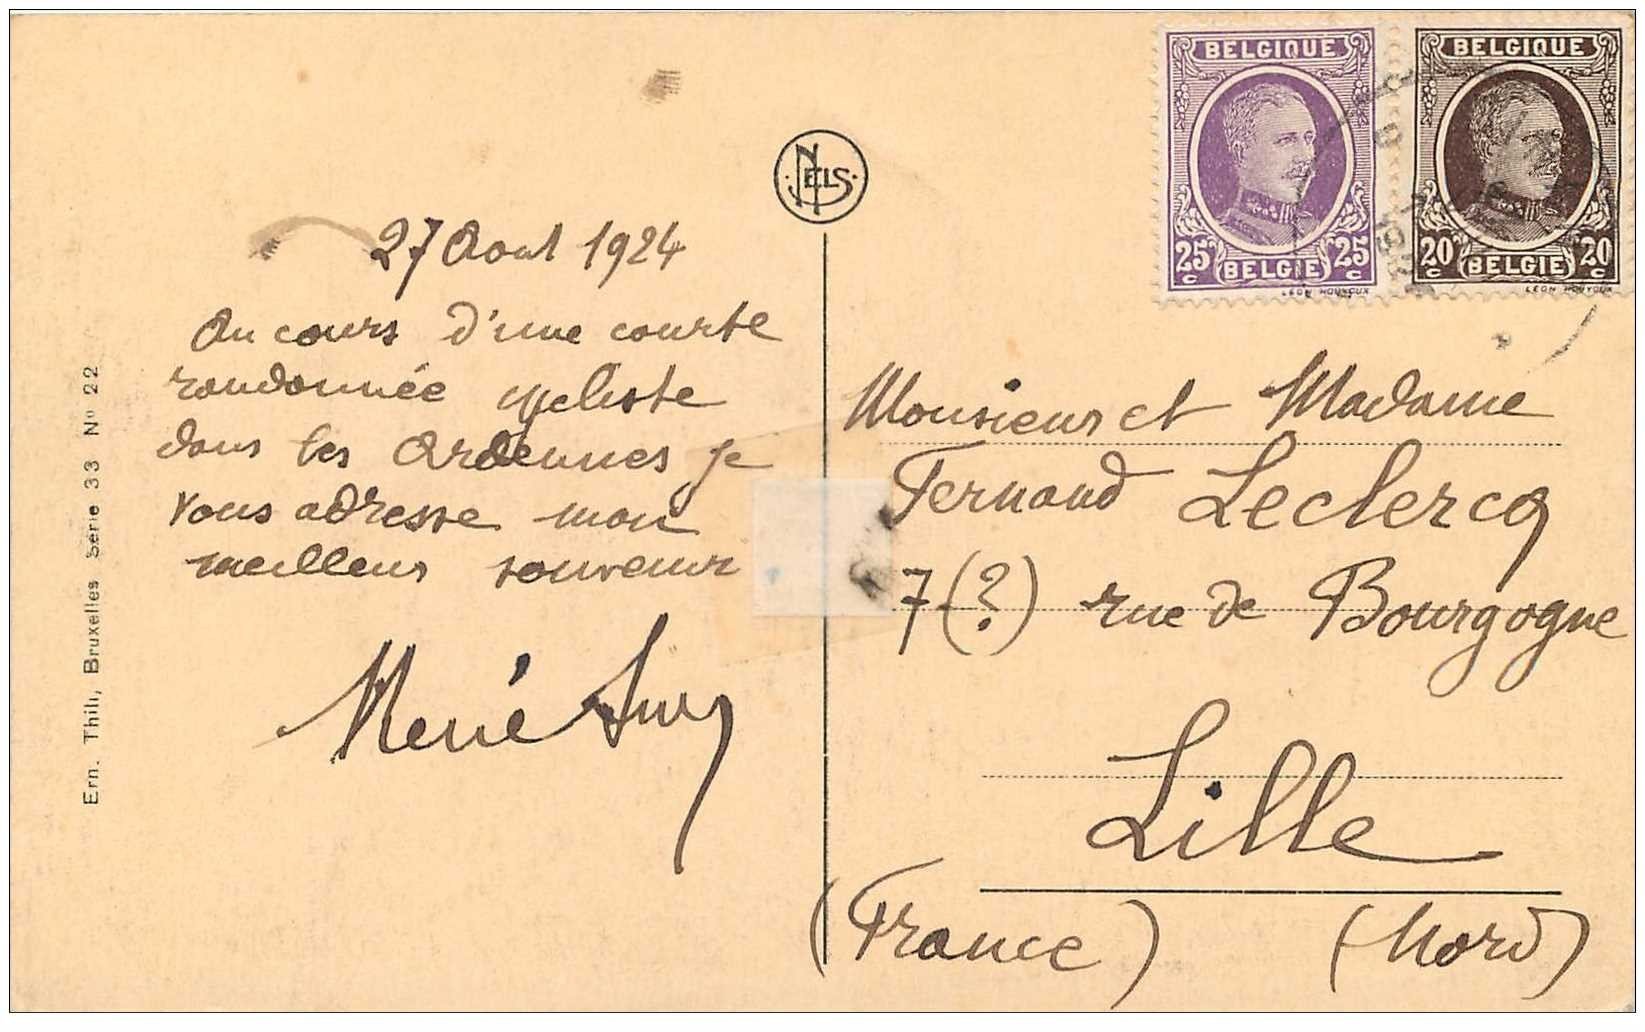 BELGIQUE
25 c BELGIË 25 c
LÉON HOUYOUX
BELGIQUE
20 c BELGIË 20 c
LÉON HOUYOUX
NELS
27 Aout 1924
Au cours d'une courte
randonnée cycliste
dans les Ardennes je
vous adresse mon
meilleur souvenir
René
Monsieur et Madame
Fernand Leclercq
7(?) rue de Bourgogne
Lille
(France) (Nord)
Ern. Thill, Bruxelles Série 33 N° 22